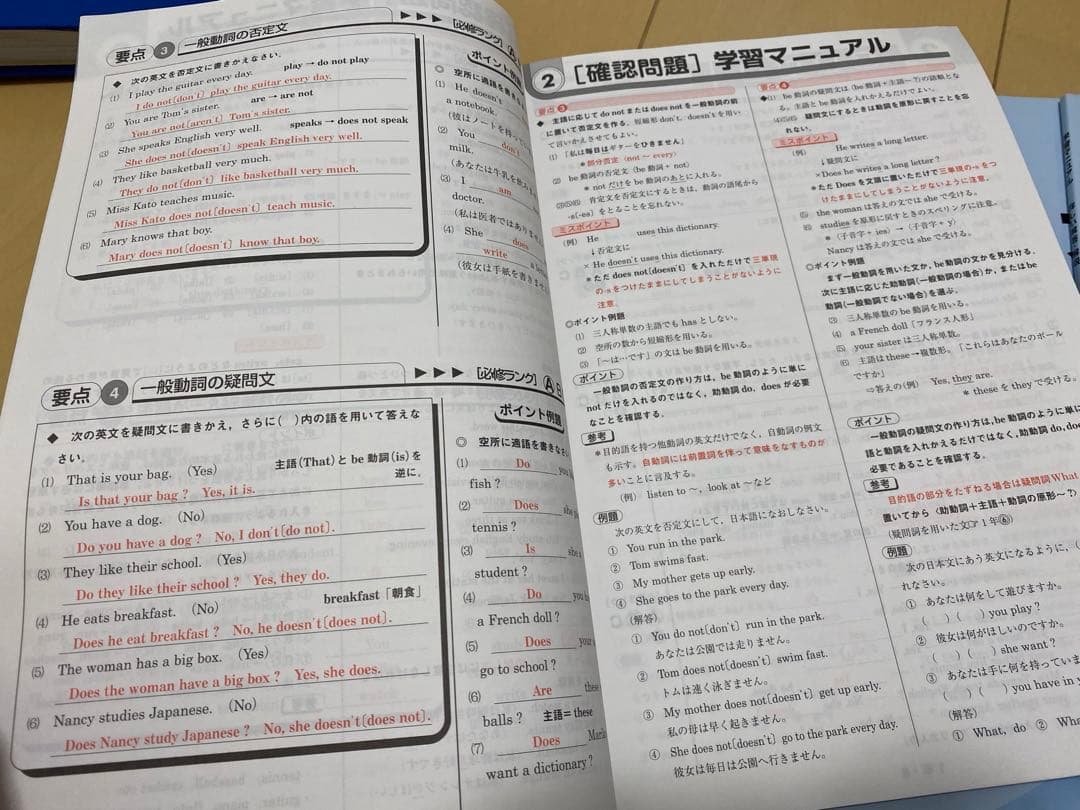 要点 3 一般動詞の否定文
▶▶▶ [必修ランク] A
◆ 次の英文を否定文に書きかえなさい。
play → do not play
(1) I play the guitar every day.
I do not[don't] play the guitar every day.
are → are not
(2) You are Tom's sister.
You are not[aren't] Tom's sister.
speaks → does not speak
(3) She speaks English very well.
She does not[doesn't] speak English very well.
(4) They like basketball very much.
They do not[don't] like basketball very much.
(5) Miss Kato teaches music.
Miss Kato does not[doesn't] teach music.
(6) Mary knows that boy.
Mary does not[doesn't] know that boy.
ポイント例
◎ 空所に適語を書き
(1) He doesn't
a notebook.
(彼はノートを持っ
(2) You don't
milk.
(あなたは牛乳を飲み
(3) I am
doctor.
(私は医者ではありま
(4) She does
write a
(彼女は手紙を書きませ
要点 4 一般動詞の疑問文
▶▶▶ [必修ランク] A
◆ 次の英文を疑問文に書きかえ，さらに( )内の語を用いて答えな
さい。
(1) That is your bag. (Yes)
主語(That)と be 動詞(is)を
逆に.
Is that your bag ? Yes, it is.
(2) You have a dog. (No)
Do you have a dog ? No, I don't[do not].
(3) They like their school. (Yes)
Do they like their school ? Yes, they do.
(4) He eats breakfast. (No)
breakfast「朝食」
Does he eat breakfast ? No, he doesn't[does not].
(5) The woman has a big box. (Yes)
Does the woman have a big box ? Yes, she does.
(6) Nancy studies Japanese. (No)
Does Nancy study Japanese ? No, she doesn't[does not].
ポイント例題
◎ 空所に適語を書きなさい
(1) Do you
fish ?
(2) Does she
tennis ?
(3) Is she a
student ?
(4) Do you
a French doll ?
(5) Does your
go to school ?
(6) Are these
balls ? 主語＝these
(7) Does
want a dictionary ?
2 [確認問題] 学習マニュアル
要点 3
◆ 主語に応じて do not または does not を一般動詞の前
に置いて否定文を作る. 短縮形 don't, doesn't を用い
て言いかえさせてもよい.
(1) 「私は毎日はギターをひきません」
＊部分否定 (not ～ every)
(2) be 動詞の否定文 (be 動詞＋not)
＊not だけを be 動詞のあとに入れる.
(3)(5)(6) 肯定文を否定文にするときは, 動詞の語尾から
-s(-es)をとることを忘れない.
ミスポイント
(例) He uses this dictionary.
↓否定文に
× He doesn't uses this dictionary.
＊ただ does not[doesn't] を入れただけで三単現
の -s をつけたままにしてしまうことがないように
注意.
◎ポイント例題
(1) 三人称単数の主語でも has としない.
(2) 空所の数から短縮形を用いる.
(3) 「～は…です」の文は be 動詞を用いる.
ポイント
一般動詞の否定文の作り方は, be 動詞のように単に
not だけを入れるのではなく, 助動詞 do, does が必要
なことを確認する.
参考
＊目的語を持つ他動詞の英文だけでなく, 自動詞の例文
も示す. 自動詞には前置詞を伴って意味をなすものが
多いことに言及する.
(例) listen to ～, look at ～など
例題
次の英文を否定文にして, 日本語になおしなさい.
① You run in the park.
② Tom swims fast.
③ My mother gets up early.
④ She goes to the park every day.
(解答)
① You do not[don't] run in the park.
あなたは公園では走りません.
② Tom does not[doesn't] swim fast.
トムは速く泳ぎません.
③ My mother does not[doesn't] get up early.
私の母は早く起きません.
④ She does not[doesn't] go to the park every day.
彼女は毎日は公園へ行きません.
要点 4
◆(1) be 動詞の疑問文は〈be 動詞＋主語～?〉の語順とな
る. 主語と be 動詞を入れかえるだけでよい.
(4)(5)(6) 疑問文にするときは動詞を原形に戻すことを忘
れない.
ミスポイント
(例) He writes a long letter.
↓疑問文に
×Does he writes a long letter ?
＊ただ Does を文頭に置いただけで三単現の -s をつ
けたままにしてしまうことがないように注意.
(5) the woman は答えの文では she で受ける.
(6) studies を原形に戻すときのスペリングに注意.
＊〈子音字＋ies〉→〈子音字＋y〉
Nancy は答えの文では she で受ける.
◎ポイント例題
まず一般動詞を用いた文か, be 動詞の文かを見分ける.
次に主語に応じた助動詞(一般動詞の場合)か, または be
動詞(一般動詞でない場合)を選ぶ.
(3) 三人称単数の be 動詞を用いる.
(4) a French doll「フランス人形」
(5) your sister は三人称単数.
(6) 主語は these→複数形.「これらはあなたのボール
ですか」
→答えの(例) Yes, they are.
＊these を they で受ける.
ポイント
一般動詞の疑問文の作り方は, be 動詞のように単に
語と動詞を入れかえるだけではなく, 助動詞 do, does
必要であることを確認する.
参考
目的語の部分をたずねる場合は疑問詞 What
置いてから〈助動詞＋主語＋動詞の原形～?〉
(疑問詞を用いた文☞1年⑥)
例題
次の日本文にあう英文になるように, (
れなさい.
① あなたは何をして遊びますか.
( ) ( ) you play ?
② 彼女は何がほしいのですか.
( ) ( ) she want ?
③ あなたは手に何を持っていま
( ) ( ) you have in y
(解答)
① What, do ② What,